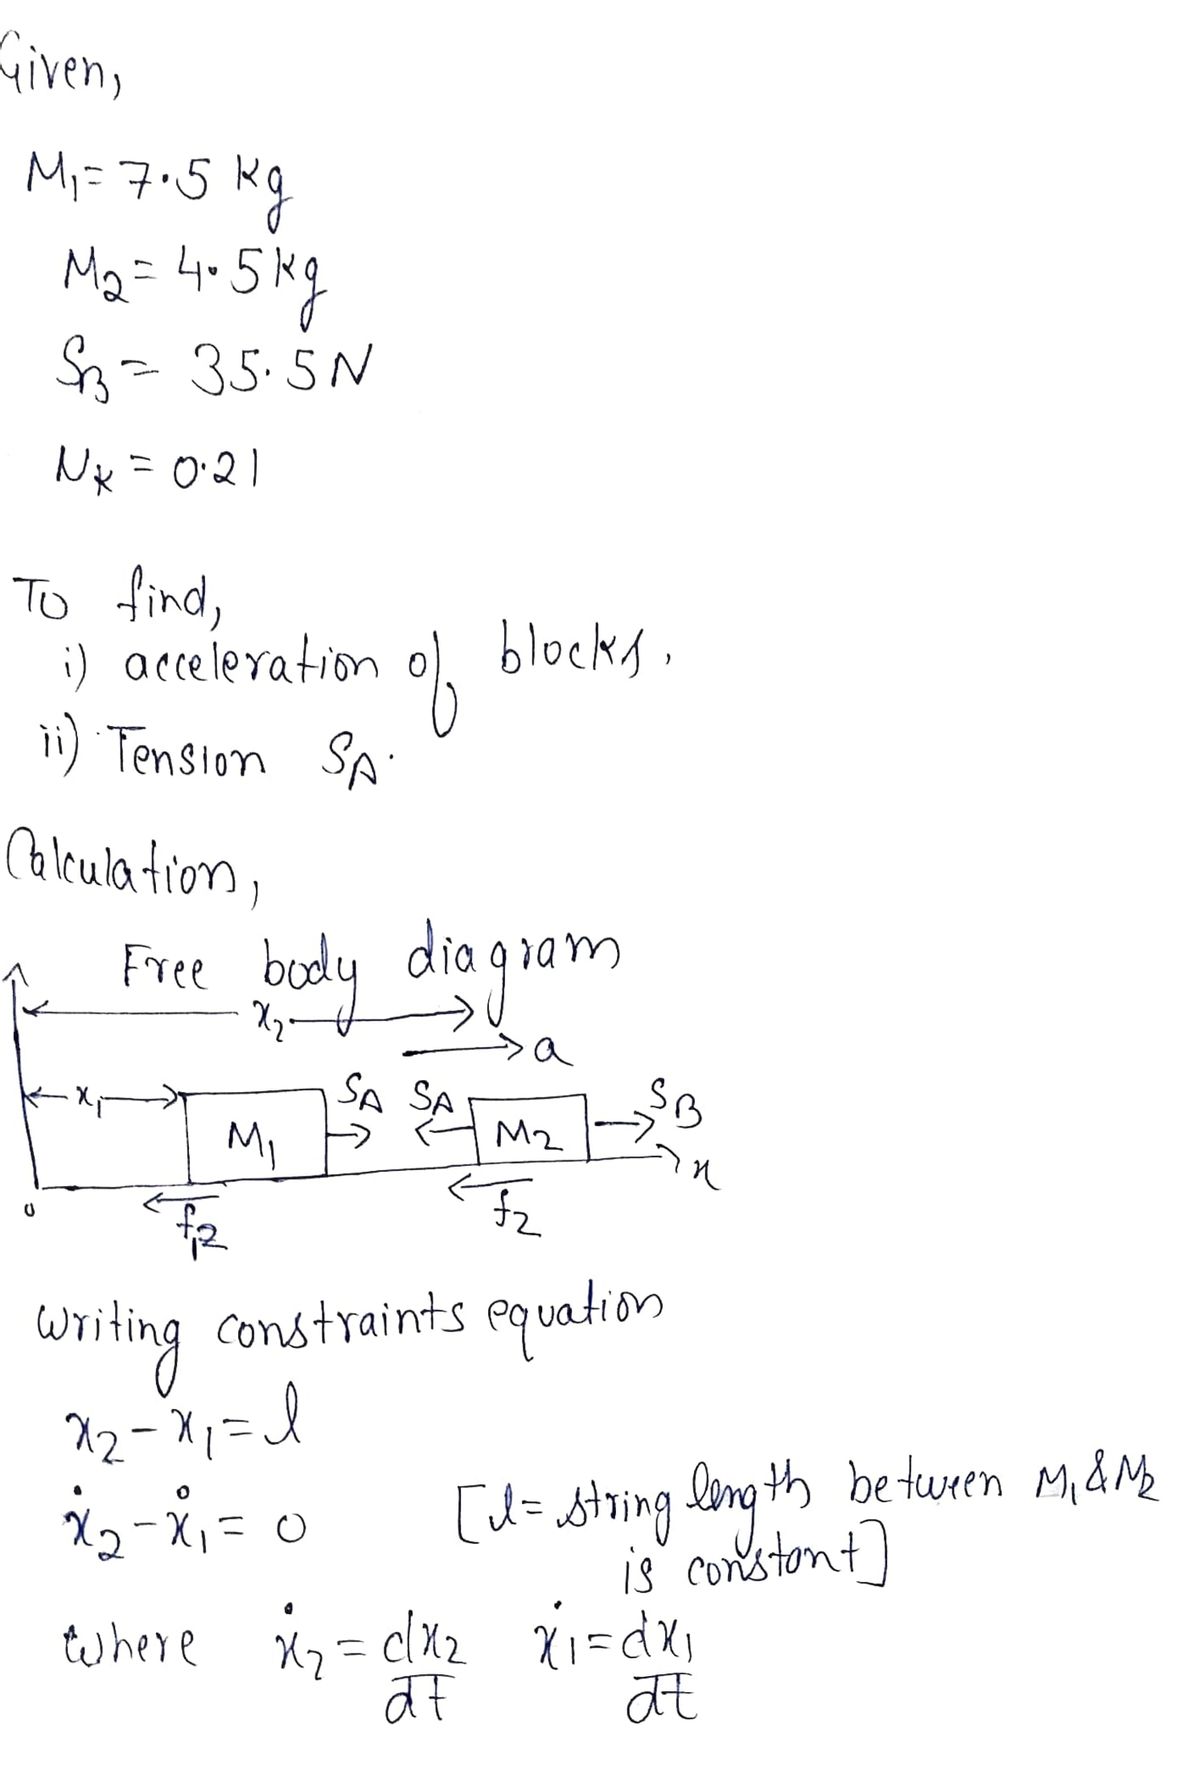 Given,
M₁ = 7.5 kg
M₂ = 4.5 kg
S_B = 35.5 N
N_K = 0.21
To find,
i) acceleration of blocks.
ii) Tension S_A.
Calculation,
Free body diagram
x₂
a
x₁ M₁ S_A S_A M₂ S_B
x
0
f₁₂ f₂
writing constraints equation
x₂ - x₁ = l
ẋ₂ - ẋ₁ = 0 [l = string length between M₁ & M₂
is constant]
where ẋ₂ = dx₂/dt ẋ₁ = dx₁/dt